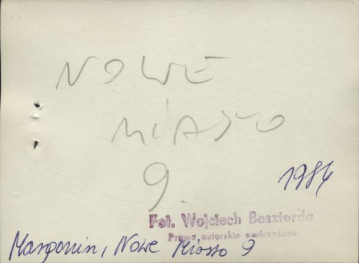 NOWE
MIASTO
9.
1984
Fot. Wojciech Beszterda
Prawa autorskie zastrzeżone
Margonin, Nowe Miasto 9